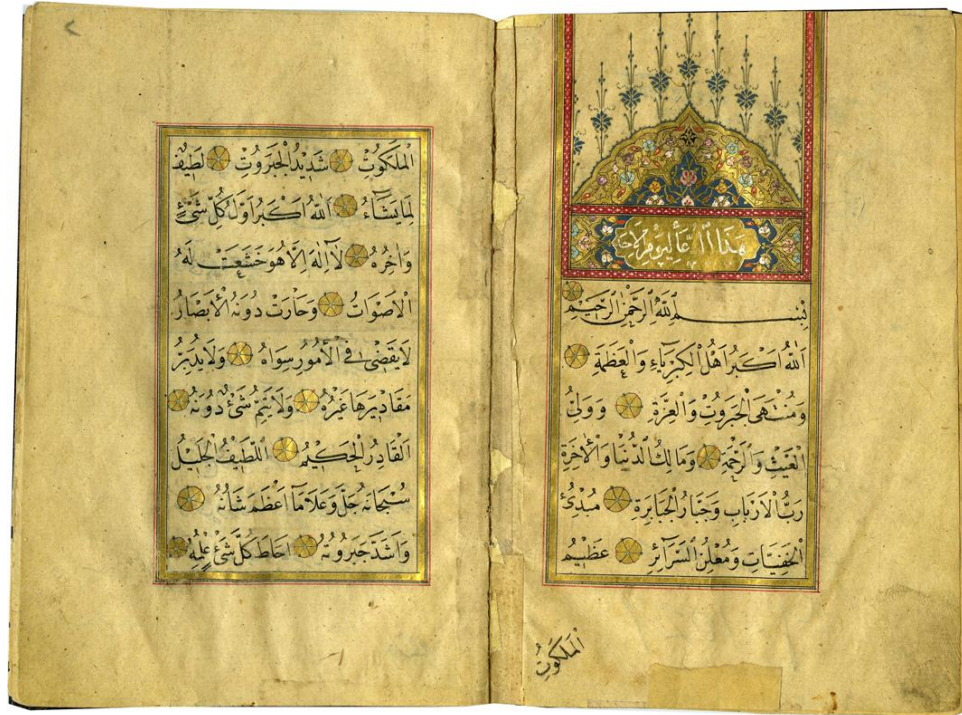 هَذَا الدُّعَاءُ لِيَوْمِ الْاَحَدِ
بِسْمِ اللّٰهِ الرَّحْمٰنِ الرَّحِيْمِ
اَللّٰهُ اَكْبَرُ اَهْلُ الْكِبْرِيَاءِ وَالْعَظَمَةِ
وَمُنْتَهَى الْجَبَرُوتِ وَالْعِزَّةِ وَوَلِيُّ
الْغَيْثِ وَالرَّحْمَةِ وَمَالِكُ الدُّنْيَا وَالْاٰخِرَةِ
رَبُّ الْاَرْبَابِ وَجَبَّارُ الْجَبَابِرَةِ مُبْدِئُ
الْخَفِيَّاتِ وَمُعْلِنُ السَّرَائِرِ عَظِيْمُ
الْمَلَكُوتِ
الْمَلَكُوتِ شَدِيدُ الْجَبَرُوتِ لَطِيفٌ
لِمَا يَشَاءُ اَللّٰهُ اَكْبَرُ اَوَّلُ كُلِّ شَيْءٍ
وَاٰخِرُهُ لَا اِلٰهَ اِلَّا هُوَ خَشَعَتْ لَهُ
الْاَصْوَاتُ وَحَارَتْ دُونَهُ الْاَبْصَارُ
لَا يَقْضِى فِى الْاُمُورِ سِوَاهُ وَلَا يُدَبِّرُ
مَقَادِيرَهَا غَيْرُهُ وَلَا يَتِمُّ شَيْءٌ دُونَهُ
الْقَادِرُ الْحَكِيْمُ اللَّطِيفُ الْجَلِيْلُ
سُبْحَانَهُ جَلَّ وَعَلَا مَا اَعْظَمَ شَانُهُ
وَاَشَدَّ جَبَرُوتُهُ اَحَاطَ كُلَّ شَيْءٍ عِلْمُهُ